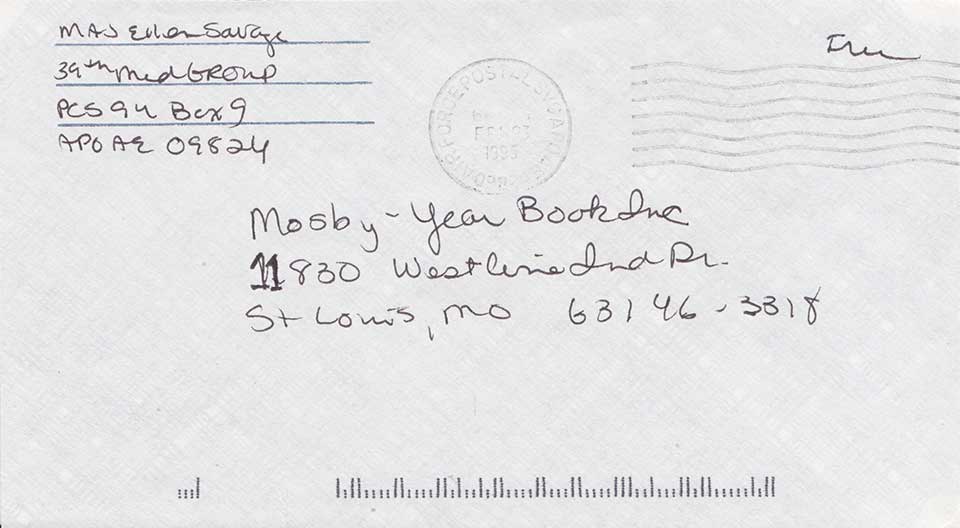 MAJ Eileen Savage
39th Med GROUP
PCS 94 Box 9
APO AE 09824
Free
AIR FORCE POSTAL SVC
FEB 23
1995
Mosby-Year Book Inc
11830 Westline Ind Dr.
St Louis, MO 63146-3318